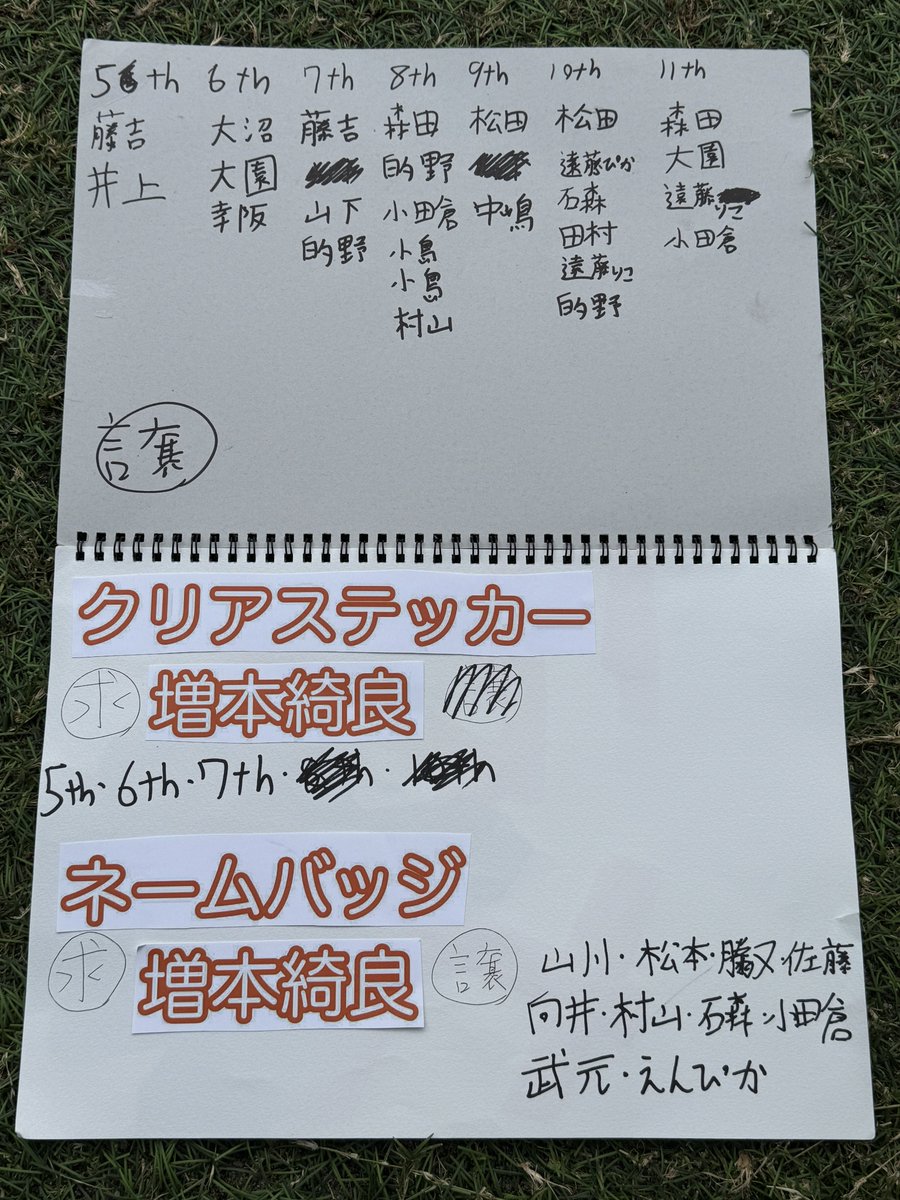 5th 6th 7th 8th 9th 10th 11th
藤吉 大沼 藤吉 森田 松田 松田 森田
井上 大園 的野 遠藤ぴか 大園
幸阪 山下 小田倉 中嶋 石森 遠藤りこ
的野 小島 田村 小田倉
小島 遠藤りこ
村山 的野
譲
クリアステッカー
求 増本綺良
5th・6th・7th・
ネームバッジ
求 増本綺良 譲
山川・松本・藤又・佐藤
向井・村山・石森・小田倉
武元・えんぴか